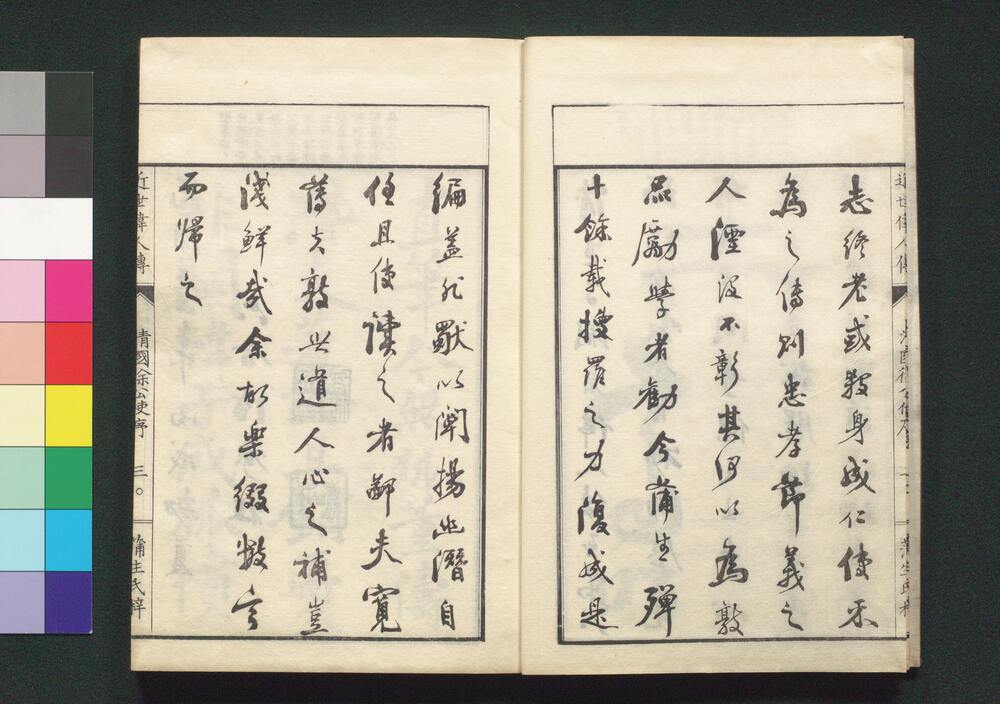 近世偉人傳　清國徐公使序
蒲生氏梓
志終老或殺身成仁使不
為之傳則忠孝節義之
人湮沒不彰其何以為敦
品勵學者勸今蒲生殫
十餘載搜羅之力復成是
編蓋以闡揚幽潛自
任且使讀之者鄙夫寬
薄夫敦世道人心之補豈
淺鮮哉余故樂綴數言
而歸之
近世偉人傳　清國徐公使序　三〇　蒲生氏梓